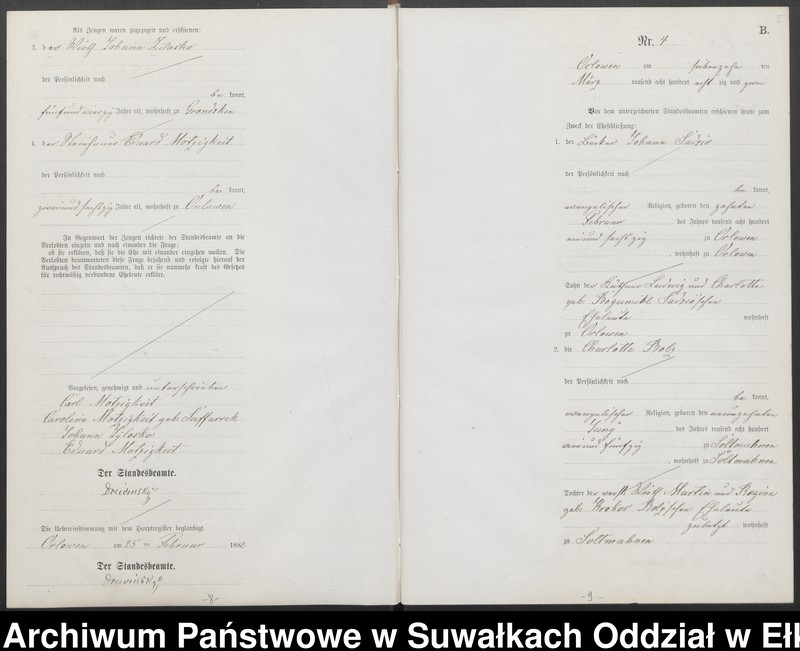 Als Zeugen waren zugezogen und erschienen:
3. der Wirth Johann Zilasko
der Persönlichkeit nach
be kannt,
fünf und vierzig Jahre alt, wohnhaft zu Grondzken
4. der Eduard Motzigkeit
der Persönlichkeit nach
be kannt,
zwei und sechzig Jahre alt, wohnhaft zu Orlowen
In Gegenwart der Zeugen richtete der Standesbeamte an die
Verlobten einzeln und nach einander die Frage:
ob sie erklären, daß sie die Ehe mit einander eingehen wollen. Die
Verlobten beantworteten diese Frage bejahend und erfolgte hierauf der
Ausspruch des Standesbeamten, daß er sie nunmehr kraft des Gesetzes
für rechtmäßig verbundene Eheleute erkläre.
Vorgelesen, genehmigt und unterschrieben
Carl Motzigkeit
Caroline Motzigkeit geb. Saffarek
Johann Zylasko
Eduard Motzigkeit
Der Standesbeamte.
Drewinsky
Die Uebereinstimmung mit dem Hauptregister beglaubigt.
Orlowen am 25 ten Februar 1882
Der Standesbeamte.
Drewinsky
-8-
B.
Nr. 4
Orlowen am siebenzehn ten
März tausend acht hundert acht zig und zwei
Vor dem unterzeichneten Standesbeamten erschienen heute zum
Zweck der Eheschließung:
1. der Johann Sadzio
der Persönlichkeit nach
be kannt,
evangelischer Religion, geboren den zehnten
Februar des Jahres tausend acht hundert
ein und sechzig zu Orlowen
, wohnhaft zu Orlowen
Sohn der Käthner Ludwig und Charlotte
geb. Bogumihl Sadzio'schen
Eheleute wohnhaft
zu Orlowen
2. die Charlotte Bolz
der Persönlichkeit nach
be kannt,
evangelischer Religion, geboren den neunzehnten
Juny des Jahres tausend acht hundert
und fünfzig zu Soltmahnen
, wohnhaft zu Soltmahnen
Tochter der verst. Wirth Martin und Regine
geb. Bolz'schen Eheleute
zuletzt wohnhaft
zu Soltmahnen
-9-
Archiwum Państwowe w Suwałkach Oddział w Ełk